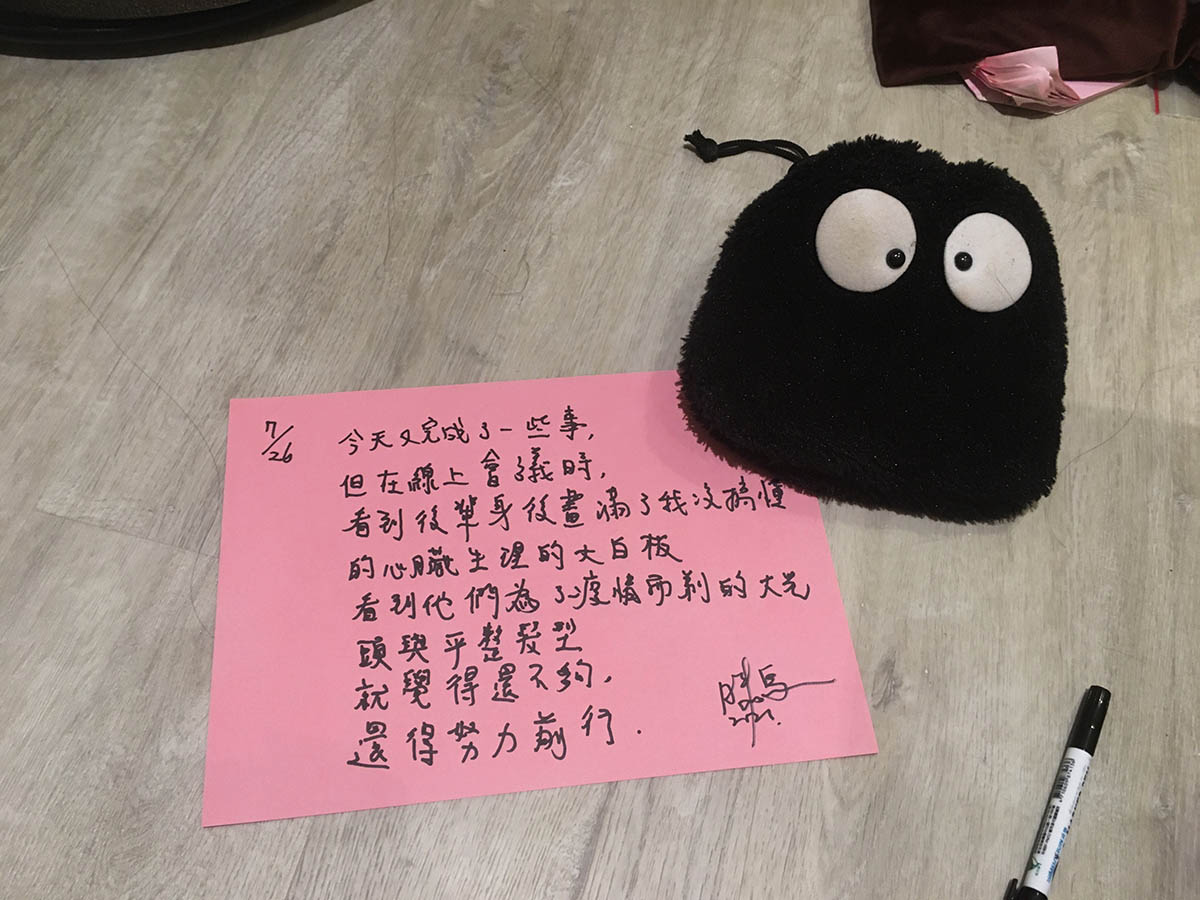 7/26
今天又完成了一些事,
但在線上會議時,
看到後輩身後畫滿了我沒搞懂
的心臟生理的大白板
看到他們為了疫情而剃的大光
頭與平整髮型
就覺得還不夠,
還得努力前行.
2021.